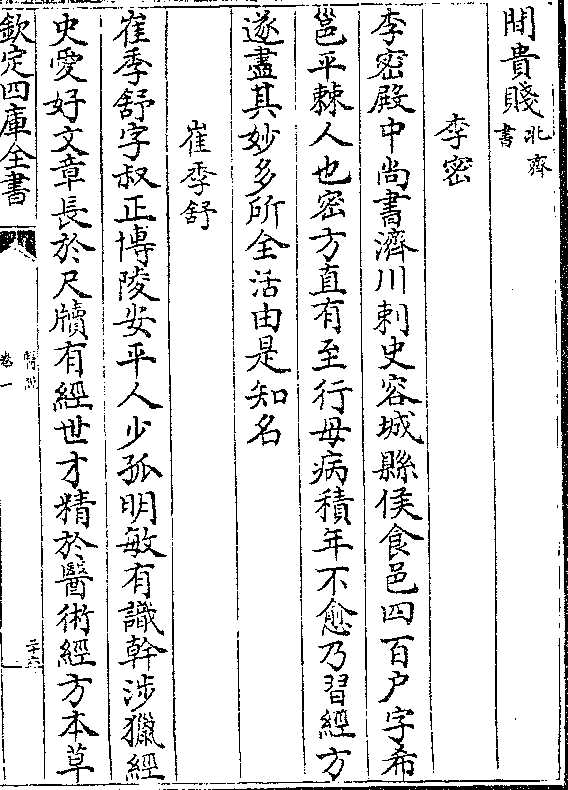 間貴賤北齊書
李密
李密殿中尚書濟川刺史容城縣侯食邑四百户字希
邕平棘人也密方直有至行母病積年不愈乃習經方
遂盡其妙多所全活由是知名
崔季舒
崔季舒字叔正博陵安平人少孤明敏有識幹涉獵經
史愛好文章長於尺牘有經世才精於醫術經方本草
欽定四庫全書
醫説
卷一
二十六